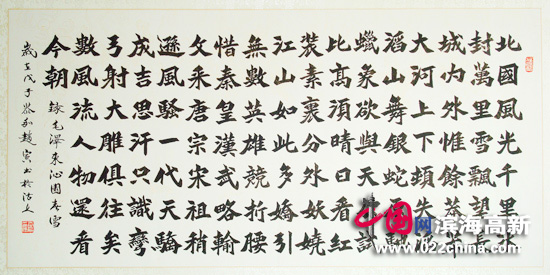 北國風光千里冰
封萬里雪飄望
城内外惟餘莽
大河上下頓失
滔山舞銀蛇
蠟象欲與天試
比高須晴日看紅
裝素裹分外妖嬈
江山如此多嬌引
無數英雄競折腰
惜秦皇漢武略輸
文采唐宗宋祖稍
遜風騷一代天驕
成吉思汗只識彎
弓射大雕俱往矣
數風流人物還看
今朝
錄毛澤東沁園春雪
歲在戊子 趙寅書於
中国网 滨海高新
www.022china.com